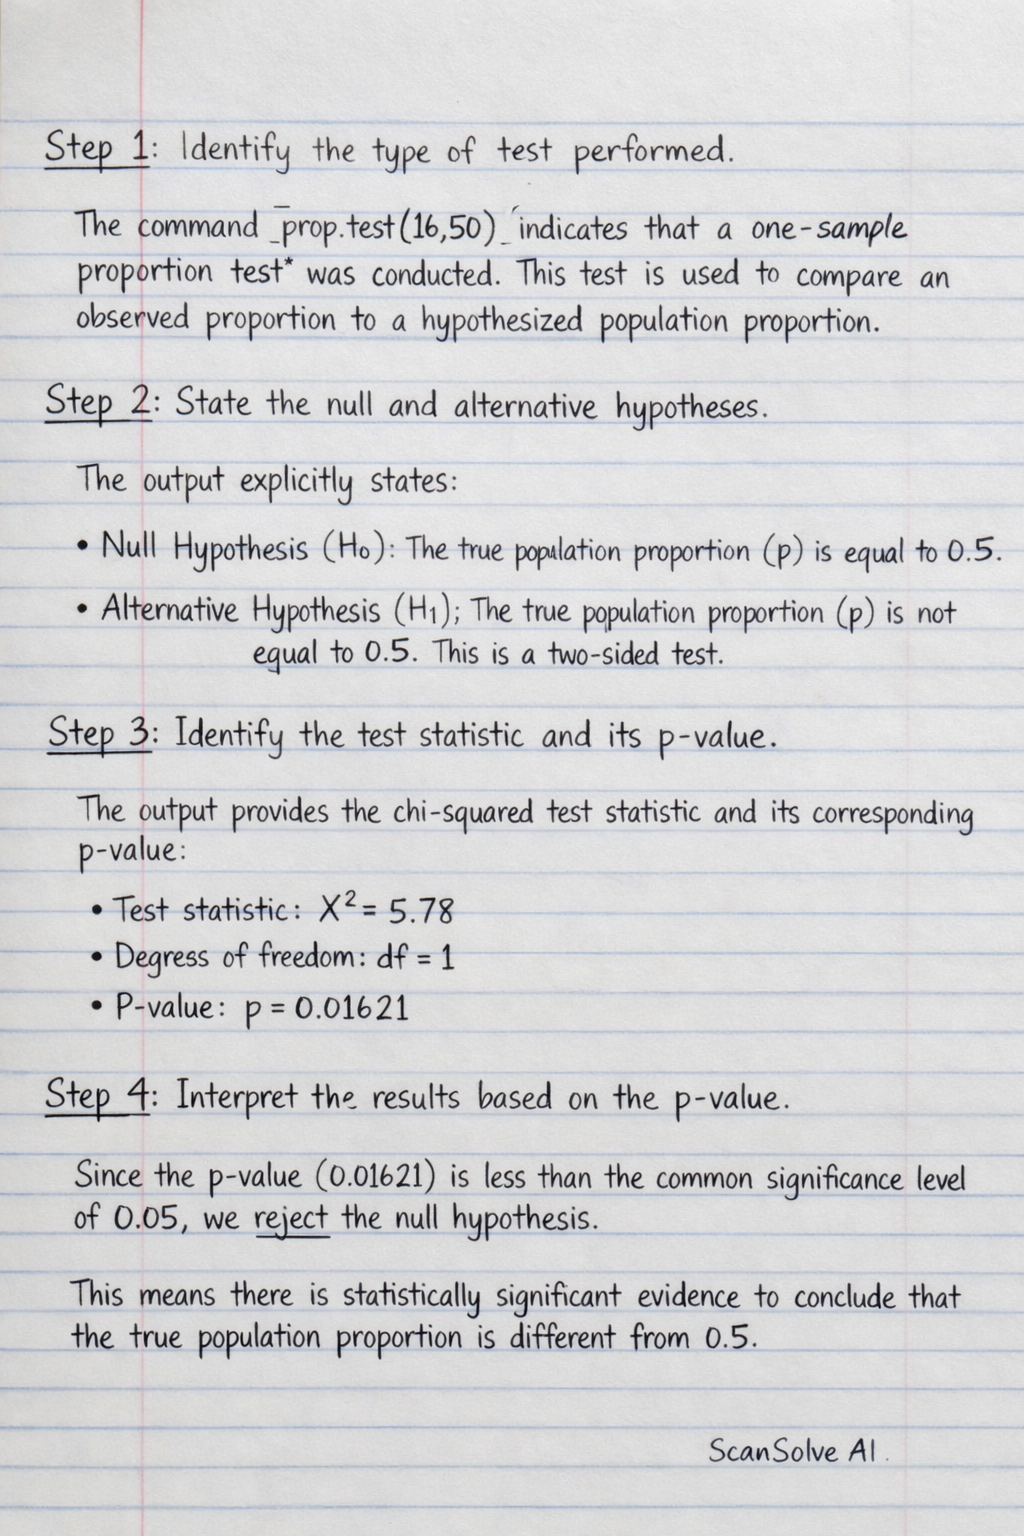 Step 1: Identify the type of test performed.
The command _prop.test(16,50)_ indicates that a one-sample
proportion test* was conducted. This test is used to compare an
observed proportion to a hypothesized population proportion.
Step 2: State the null and alternative hypotheses.
The output explicitly states:
• Null Hypothesis (H₀): The true population proportion (p) is equal to 0.5.
• Alternative Hypothesis (H₁); The true population proportion (p) is not
equal to 0.5. This is a two-sided test.
Step 3: Identify the test statistic and its p-value.
The output provides the chi-squared test statistic and its corresponding
p-value:
• Test statistic: X² = 5.78
• Degress of freedom: df = 1
• P-value: p = 0.01621
Step 4: Interpret the results based on the p-value.
Since the p-value (0.01621) is less than the common significance level
of 0.05, we reject the null hypothesis.
This means there is statistically significant evidence to conclude that
the true population proportion is different from 0.5.
ScanSolve AI.